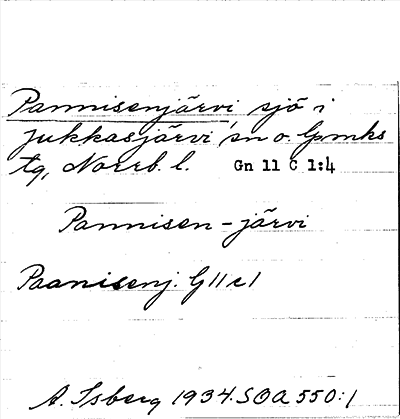 Pannisenjärvi, sjö i
Jukkasjärvi sn o. Lpmks
tg, Norrb. l. Gn 11 C 1:4
Pannisen-järvi
Paanisenj. G11c1
A. Isberg 1934. SOA 550:1